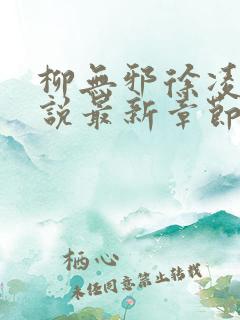 柳無邪徐凌
說最新章節
栖心
未经同意禁止转载